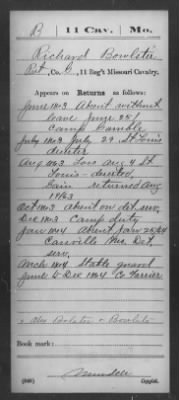 B | 11 Cav. | Mo.
Richard Bowlster
Pvt., Co. B, 11 Reg't Missouri Cavalry.
Appears on Returns as follows:
June 1863 Absent without
leave June 25/
Camp Gamble
July 1863 July 29 St Louis
deserter
Aug 1863 Loss Aug 4 St
Louis - deserted,
Gain returned Aug
1863
Oct 1863 Absent on det. serv.
Dec 1863 Camp duty
Jan 1864 Absent Jan 25/64
Mo. Det.
serv.
March 1864 Stable guard
June to Dec 1864 Co Farrier
Book mark:
(546)
Copyist.